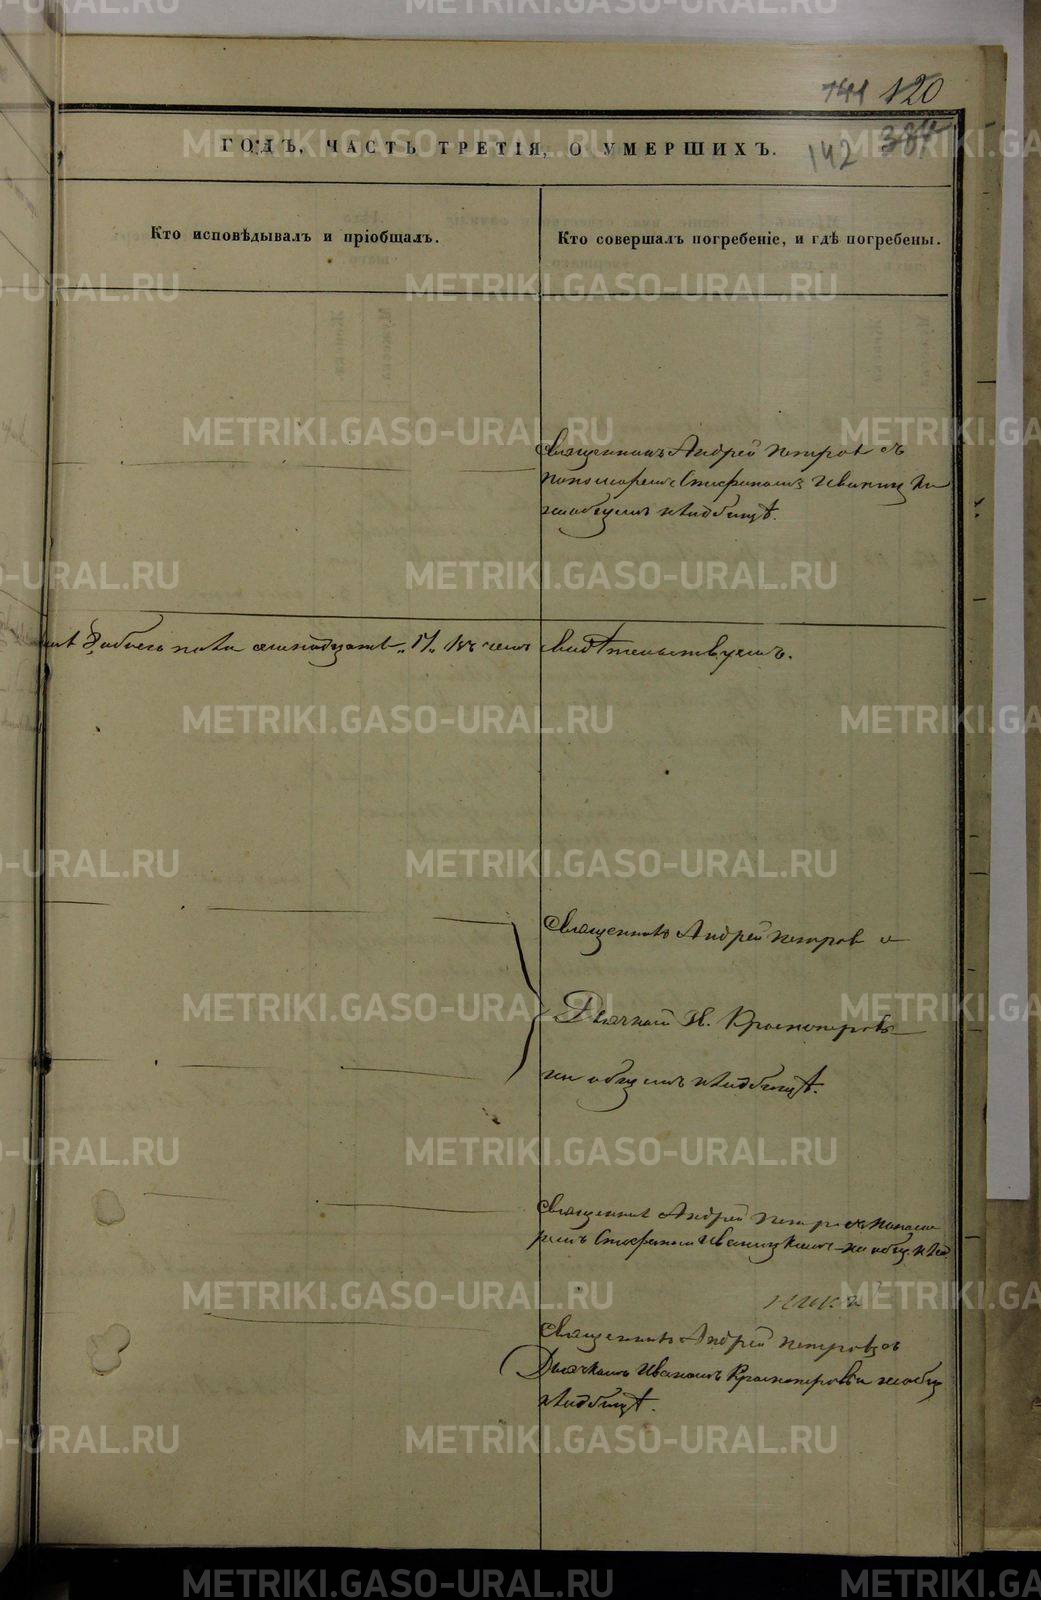 METRIKI.GASO-URAL.RU
141 120
ГОДЪ, ЧАСТЬ ТРЕТІЯ, О УМЕРШИХЪ.
142 384
Кто исповѣдывалъ и пріобщалъ.
Кто совершалъ погребеніе, и гдѣ погребены.
Священникъ Андрей Петровъ съ
пономаремъ Стефаномъ
на общемъ кладбищѣ.
17. въ чемъ свидѣтельствуемъ.
Священникъ Андрей Петровъ и
Дьячкомъ Ив. Красноперовъ
на общемъ кладбищѣ.
Священникъ Андрей Петр съ понома
ремъ Стефаномъ Иваницкимъ на общ. клад
Священникъ Андрей Петровъ съ
Дьячкомъ Иваномъ Красноперовы на общ
кладбищѣ.